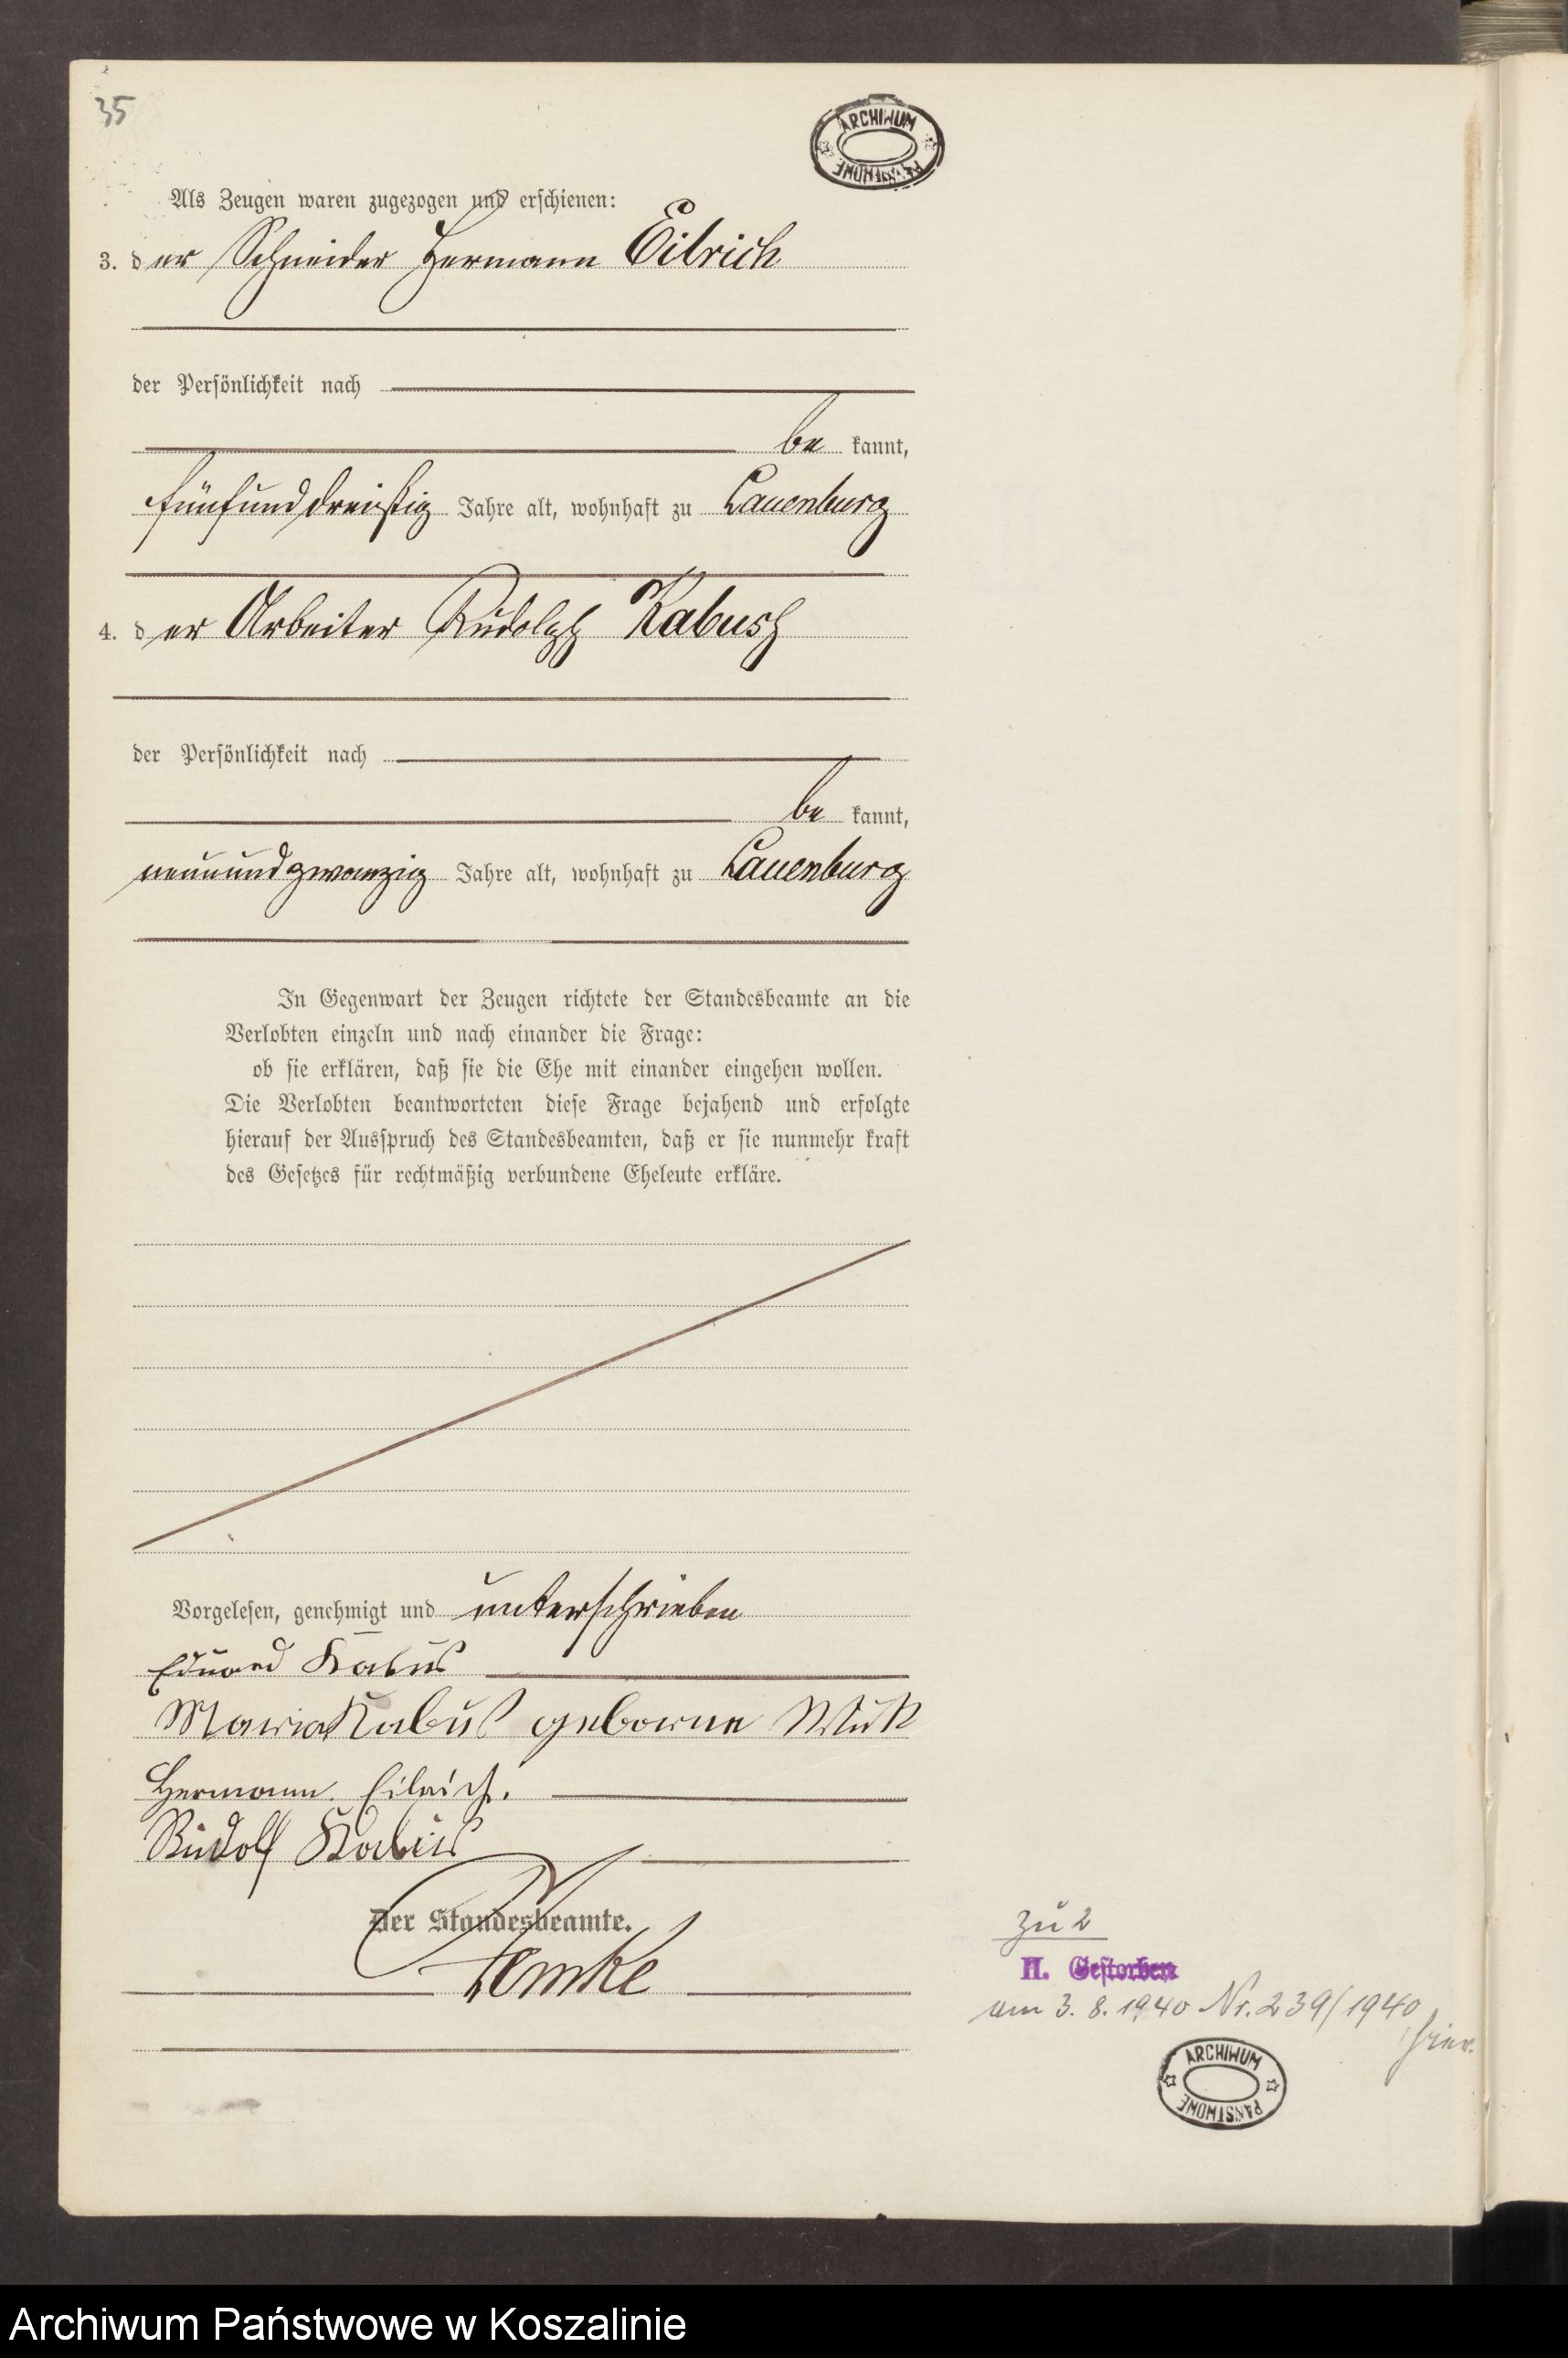 35
ARCHIWUM PAŃSTWOWE
Als Zeugen waren zugezogen und erschienen:
3. der Schneider Hermann Eilrich
der Persönlichkeit nach
be kannt,
fünfunddreißig Jahre alt, wohnhaft zu Lauenburg
4. der Arbeiter Rudolph Kabusch
der Persönlichkeit nach
be kannt,
neunundzwanzig Jahre alt, wohnhaft zu Lauenburg
In Gegenwart der Zeugen richtete der Standesbeamte an die
Verlobten einzeln und nach einander die Frage:
ob sie erklären, daß sie die Ehe mit einander eingehen wollen.
Die Verlobten beantworteten diese Frage bejahend und erfolgte
hierauf der Ausspruch des Standesbeamten, daß er sie nunmehr kraft
des Gesetzes für rechtmäßig verbundene Eheleute erkläre.
Vorgelesen, genehmigt und unterschrieben
Eduard Kabus
Maria Kabus geborne
Hermann Eilrich.
Rudolf Kabus
Der Standesbeamte.
Lemke
zu 2
H. Gestorben
am 3. 8. 1940 Nr. 239/1940
hier.
ARCHIWUM PAŃSTWOWE
Archiwum Państwowe w Koszalinie